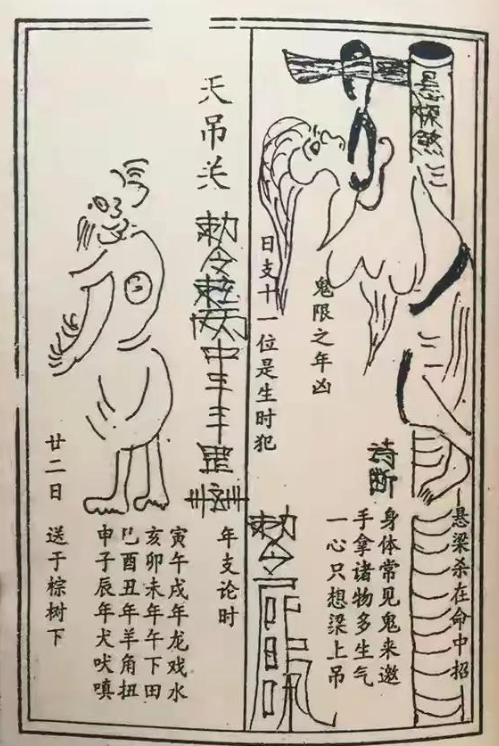 悬梁煞
诗断
悬梁杀在命中招
身体常见鬼来邀
手拿诸物多生气
一心只想梁上吊
鬼限之年凶
日支十一位是生时犯
敕令
天吊关
敕令
年支论时
寅午戌年龙戏水
亥卯未年午下田
巳酉丑年羊角扭
申子辰年犬吠嗔
廿二日 送于棕树下